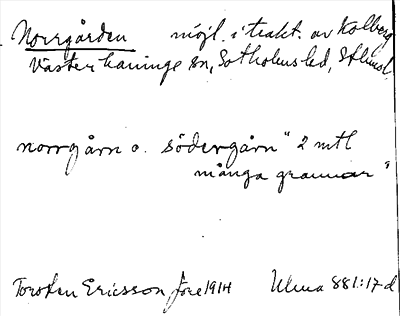 Norrgården möjl. i trakt. av Kolberg
Västerhaninge sn, Sotholms hd, Sthlms l.
norrgårn o. södergårn" 2 mtl
många grannar"
Torsten Ericsson före 1914 Ulma 881:17 d